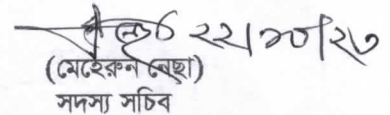 ২২/১০/২৩
(মেহেরুন নেছা)
সদস্য সচিব